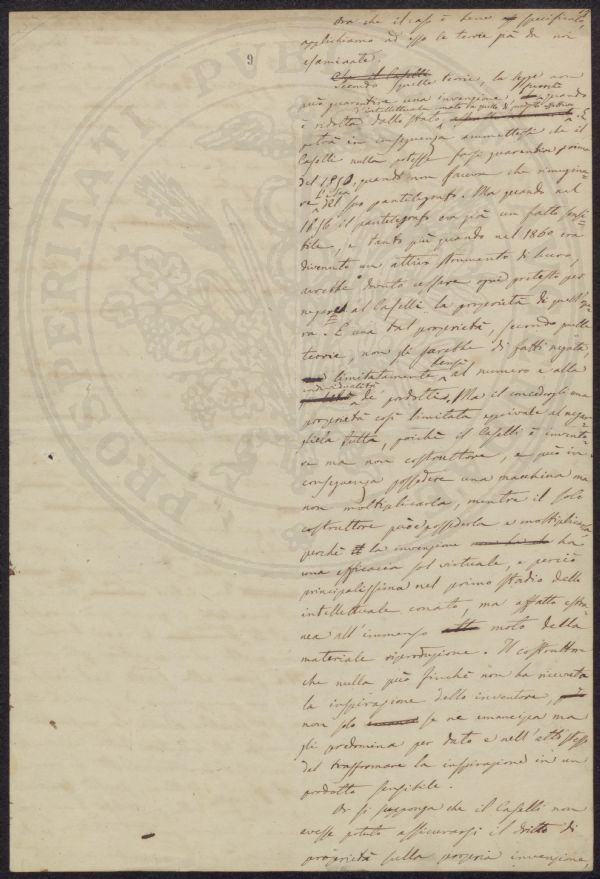 9
Ora che il caso è bene specificato,
applichiamo ad esso le teorie già da noi
esaminate.
Secondo quelle teorie, la legge non
può guarentire una invenzione, quando
è ridotta dallo stato
d'intellettuale conato a quello di prodotto
potrà in conseguenza ammettersi che il
Caselli nulla potesse farsi guarentire prima
del 1856, quando non faceva che rimugina-
re l'idea del suo pantelegrafo. Ma quando nel
1856 il pantelegrafo era già un fatto sensi-
bile, e tanto più quando nel 1860 era
divenuto un attivo strumento di lucro,
avrebbe dovuto cessare ogni pretesto per
negare al Caselli la proprietà di quell'ope-
ra. E una tal proprietà, secondo quelle
teorie, non gli sarebbe di fatti negata,
limitatamente bensì al numero e alla
individualità
de' prodotti. Ma il concedergli una
proprietà così limitata equivale al negar-
gliela tutta, poichè il Caselli è invento-
re ma non costruttore, e può in
conseguenza possedere una macchina ma
non moltiplicarla, mentre il solo
costruttore può e possederla e moltiplicarla
perchè la invenzione ha
una efficacia sol virtuale, e perciò
principalissima nel primo stadio dello
intellettuale conato, ma affatto estra-
nea all'immenso moto della
materiale riproduzione. Il costruttore
che nulla può finchè non ha ricevuta
la inspirazione dello inventore,
non solo se ne emancipa ma
gli predomina per dato e nell'atto stesso
del trasformare la inspirazione in un
prodotto sensibile.
Or si supponga che il Caselli non
avesse potuto assicurarsi il dritto di
proprietà sulla propria invenzione,